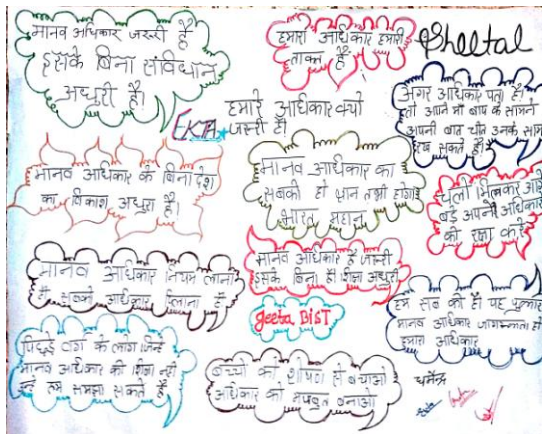 मानव अधिकार जरूरी है
इसके बिना संविधान
अधुरी है।
हमारा अधिकार हमारी
ताकत है
Sheetal
EKTA
हमारे अधिकार क्यों
जरूरी है।
अगर अधिकार पता है।
तो अपने माँ बाप के सामने
अपनी बात चीत उनके सामने
रख सकते हैं।
मानव अधिकार के बिना देश
का विकाश अधुरा है।
मानव अधिकार का
सबकी हो ज्ञान तभी होगा
भारत महान
चलो मिलकर आगे
बढ़े अपनी अधिकार
की रक्षा करे
मानव अधिकार नियम लाना
है सबको अधिकार दिलाना है
मानव अधिकार है जरूरी
इसके बिना है शिक्षा अधुरी
geeta BiST
हम सब की है यह पुकार
मानव अधिकार जागरूकता हो
हमारा अधिकार
पिछड़े वर्ग के लोग जिन्हें
मानव अधिकार की शिक्षा नही
उन्हें हम समझा सकते है
बच्चो को शोषण से बचाओ
अधिकार को मजबुत बनाओ
धर्मेन्द्र